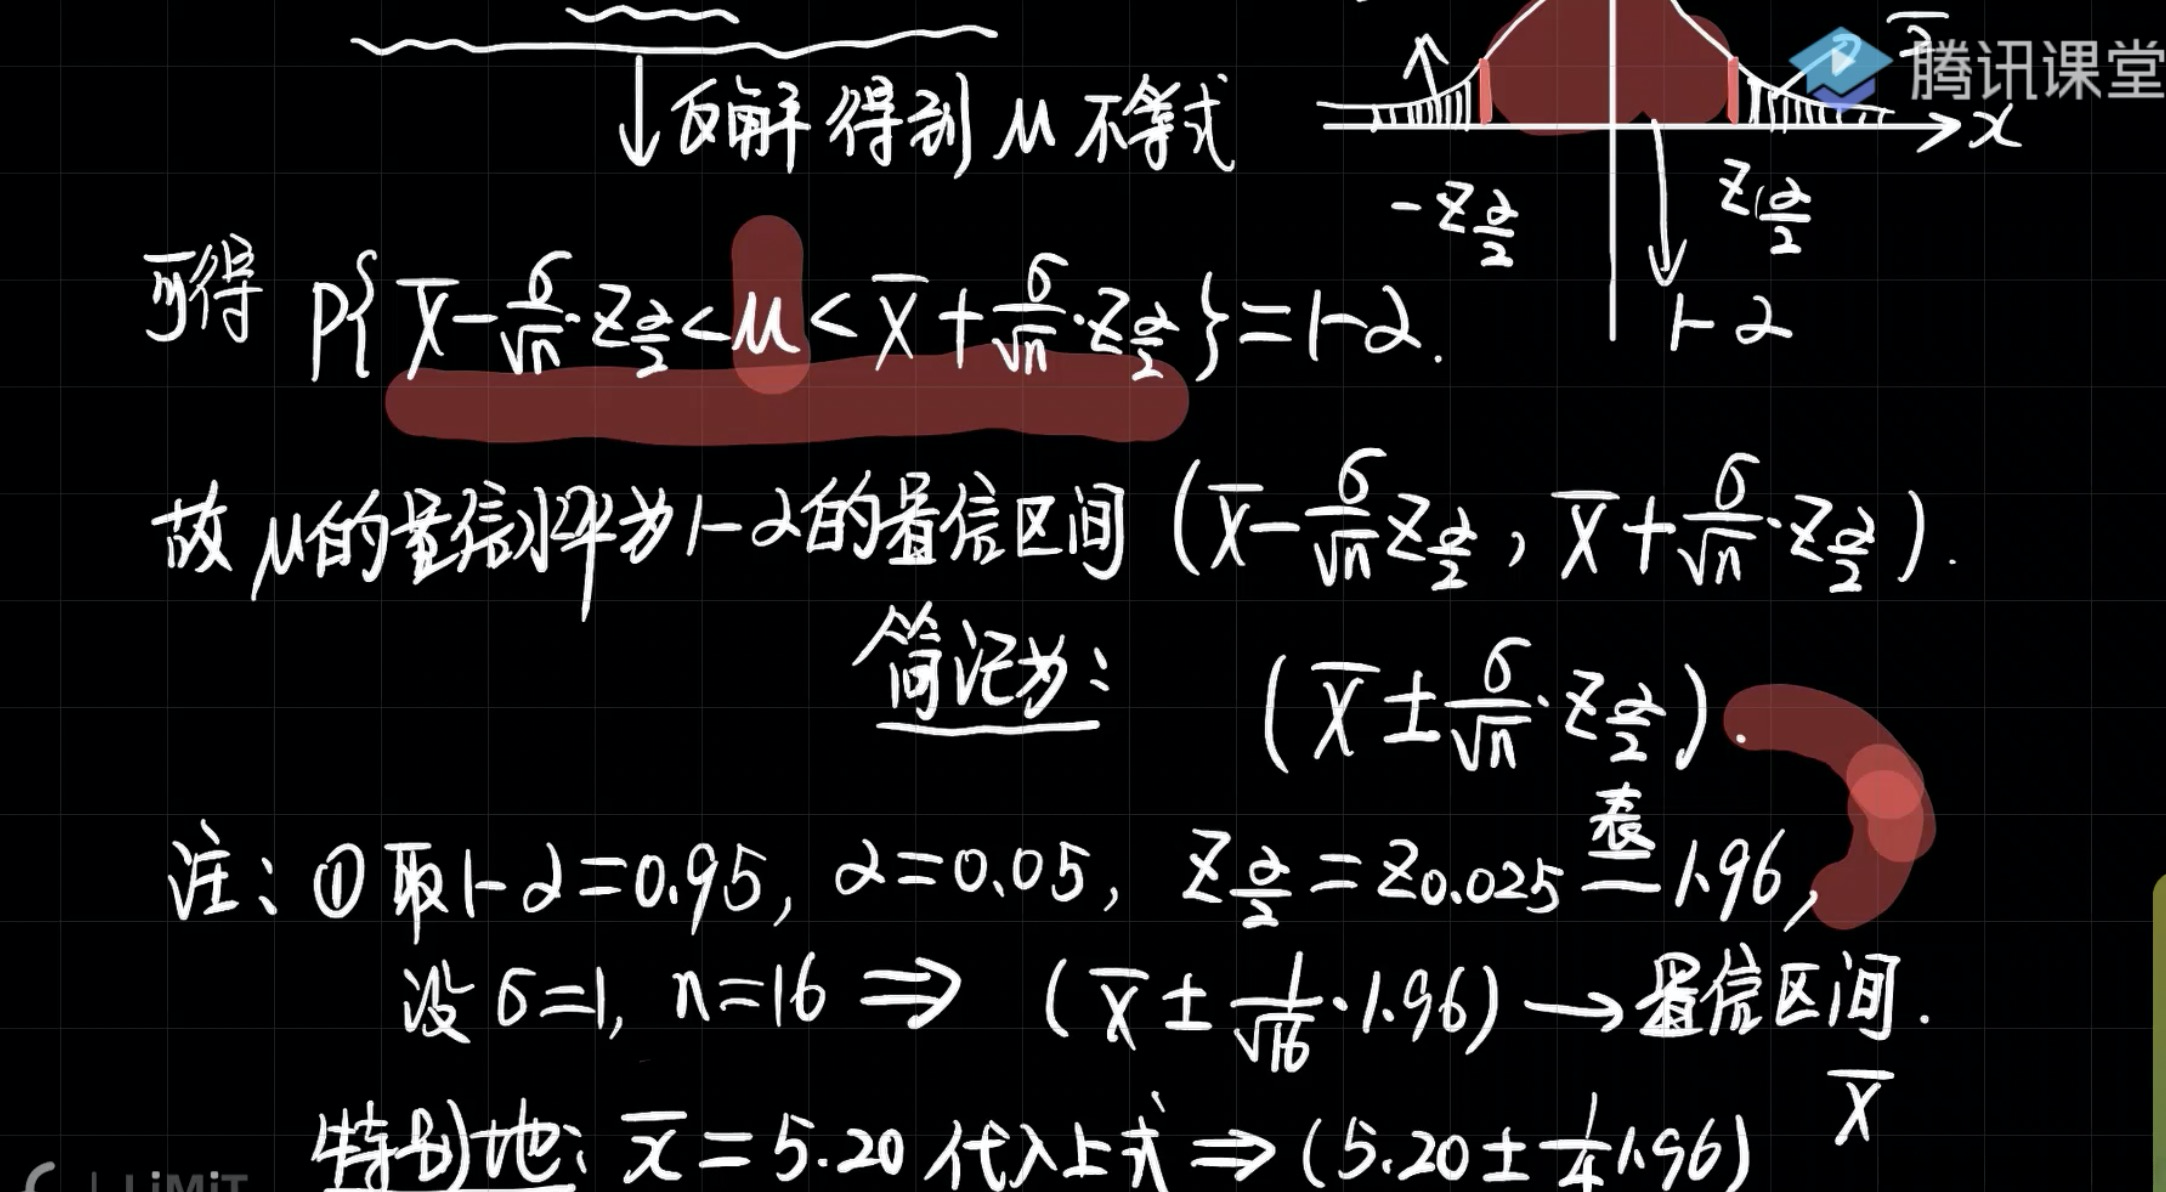 腾讯课堂
反解得到 μ 不等式
x
-Z_{α/2}
Z_{α/2}
1-α
可得 P{ X̄ - σ/√n · Z_{α/2} < μ < X̄ + σ/√n · Z_{α/2} } = 1-α.
故 μ 的置信水平为 1-α 的置信区间 ( X̄ - σ/√n Z_{α/2} , X̄ + σ/√n · Z_{α/2} ).
简记为: ( X̄ ± σ/√n · Z_{α/2} ).
表
注: ① 取 1-α=0.95, α=0.05, Z_{α/2} = Z_{0.025} = 1.96,
设 σ=1, n=16 ⇒ ( X̄ ± 1/√16 · 1.96 ) → 置信区间.
X̄
特别地: x̄ = 5.20 代入上式 ⇒ (5.20 ± 1/4 1.96)
LiMiT